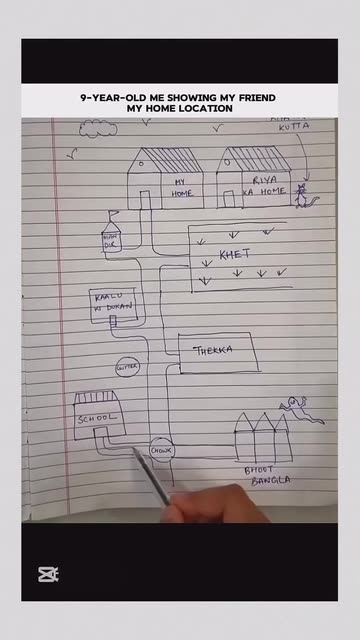 9-YEAR-OLD ME SHOWING MY FRIEND
MY HOME LOCATION
KUTTA
MY
HOME
RIYA
KA HOME
MAN
DIR
KHET
KAALU
KI DUKAN
THEKA
GUTTER
SCHOOL
CHOWK
BHOOT
BANGLA